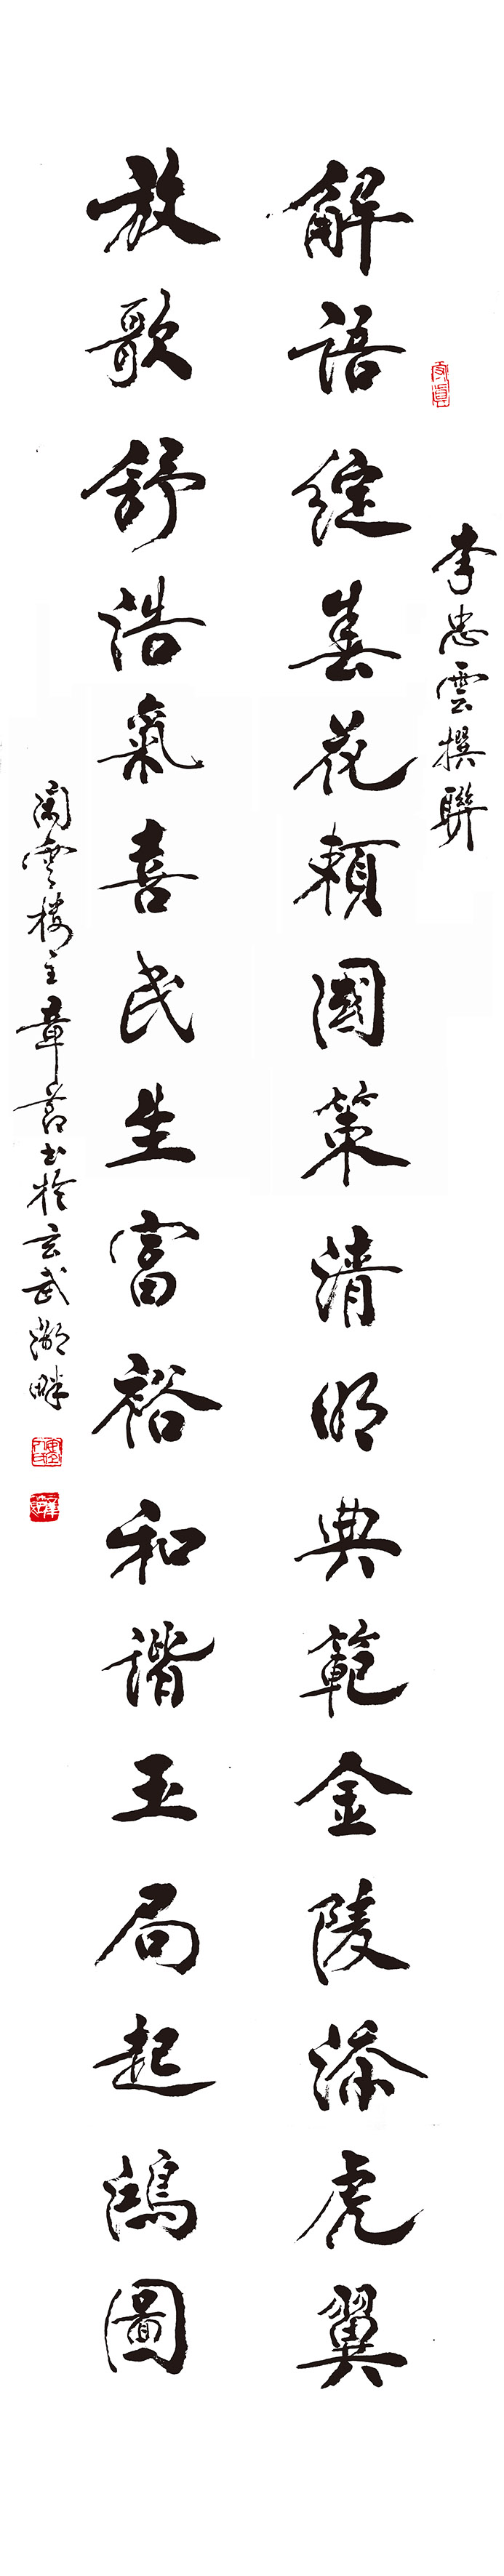 李忠雲撰聯
解語綻春花賴國策清明典範金陵添虎翼
放歌舒浩氣喜民生富裕和諧玉局起鴻圖
雲楼主章书於玄武湖畔